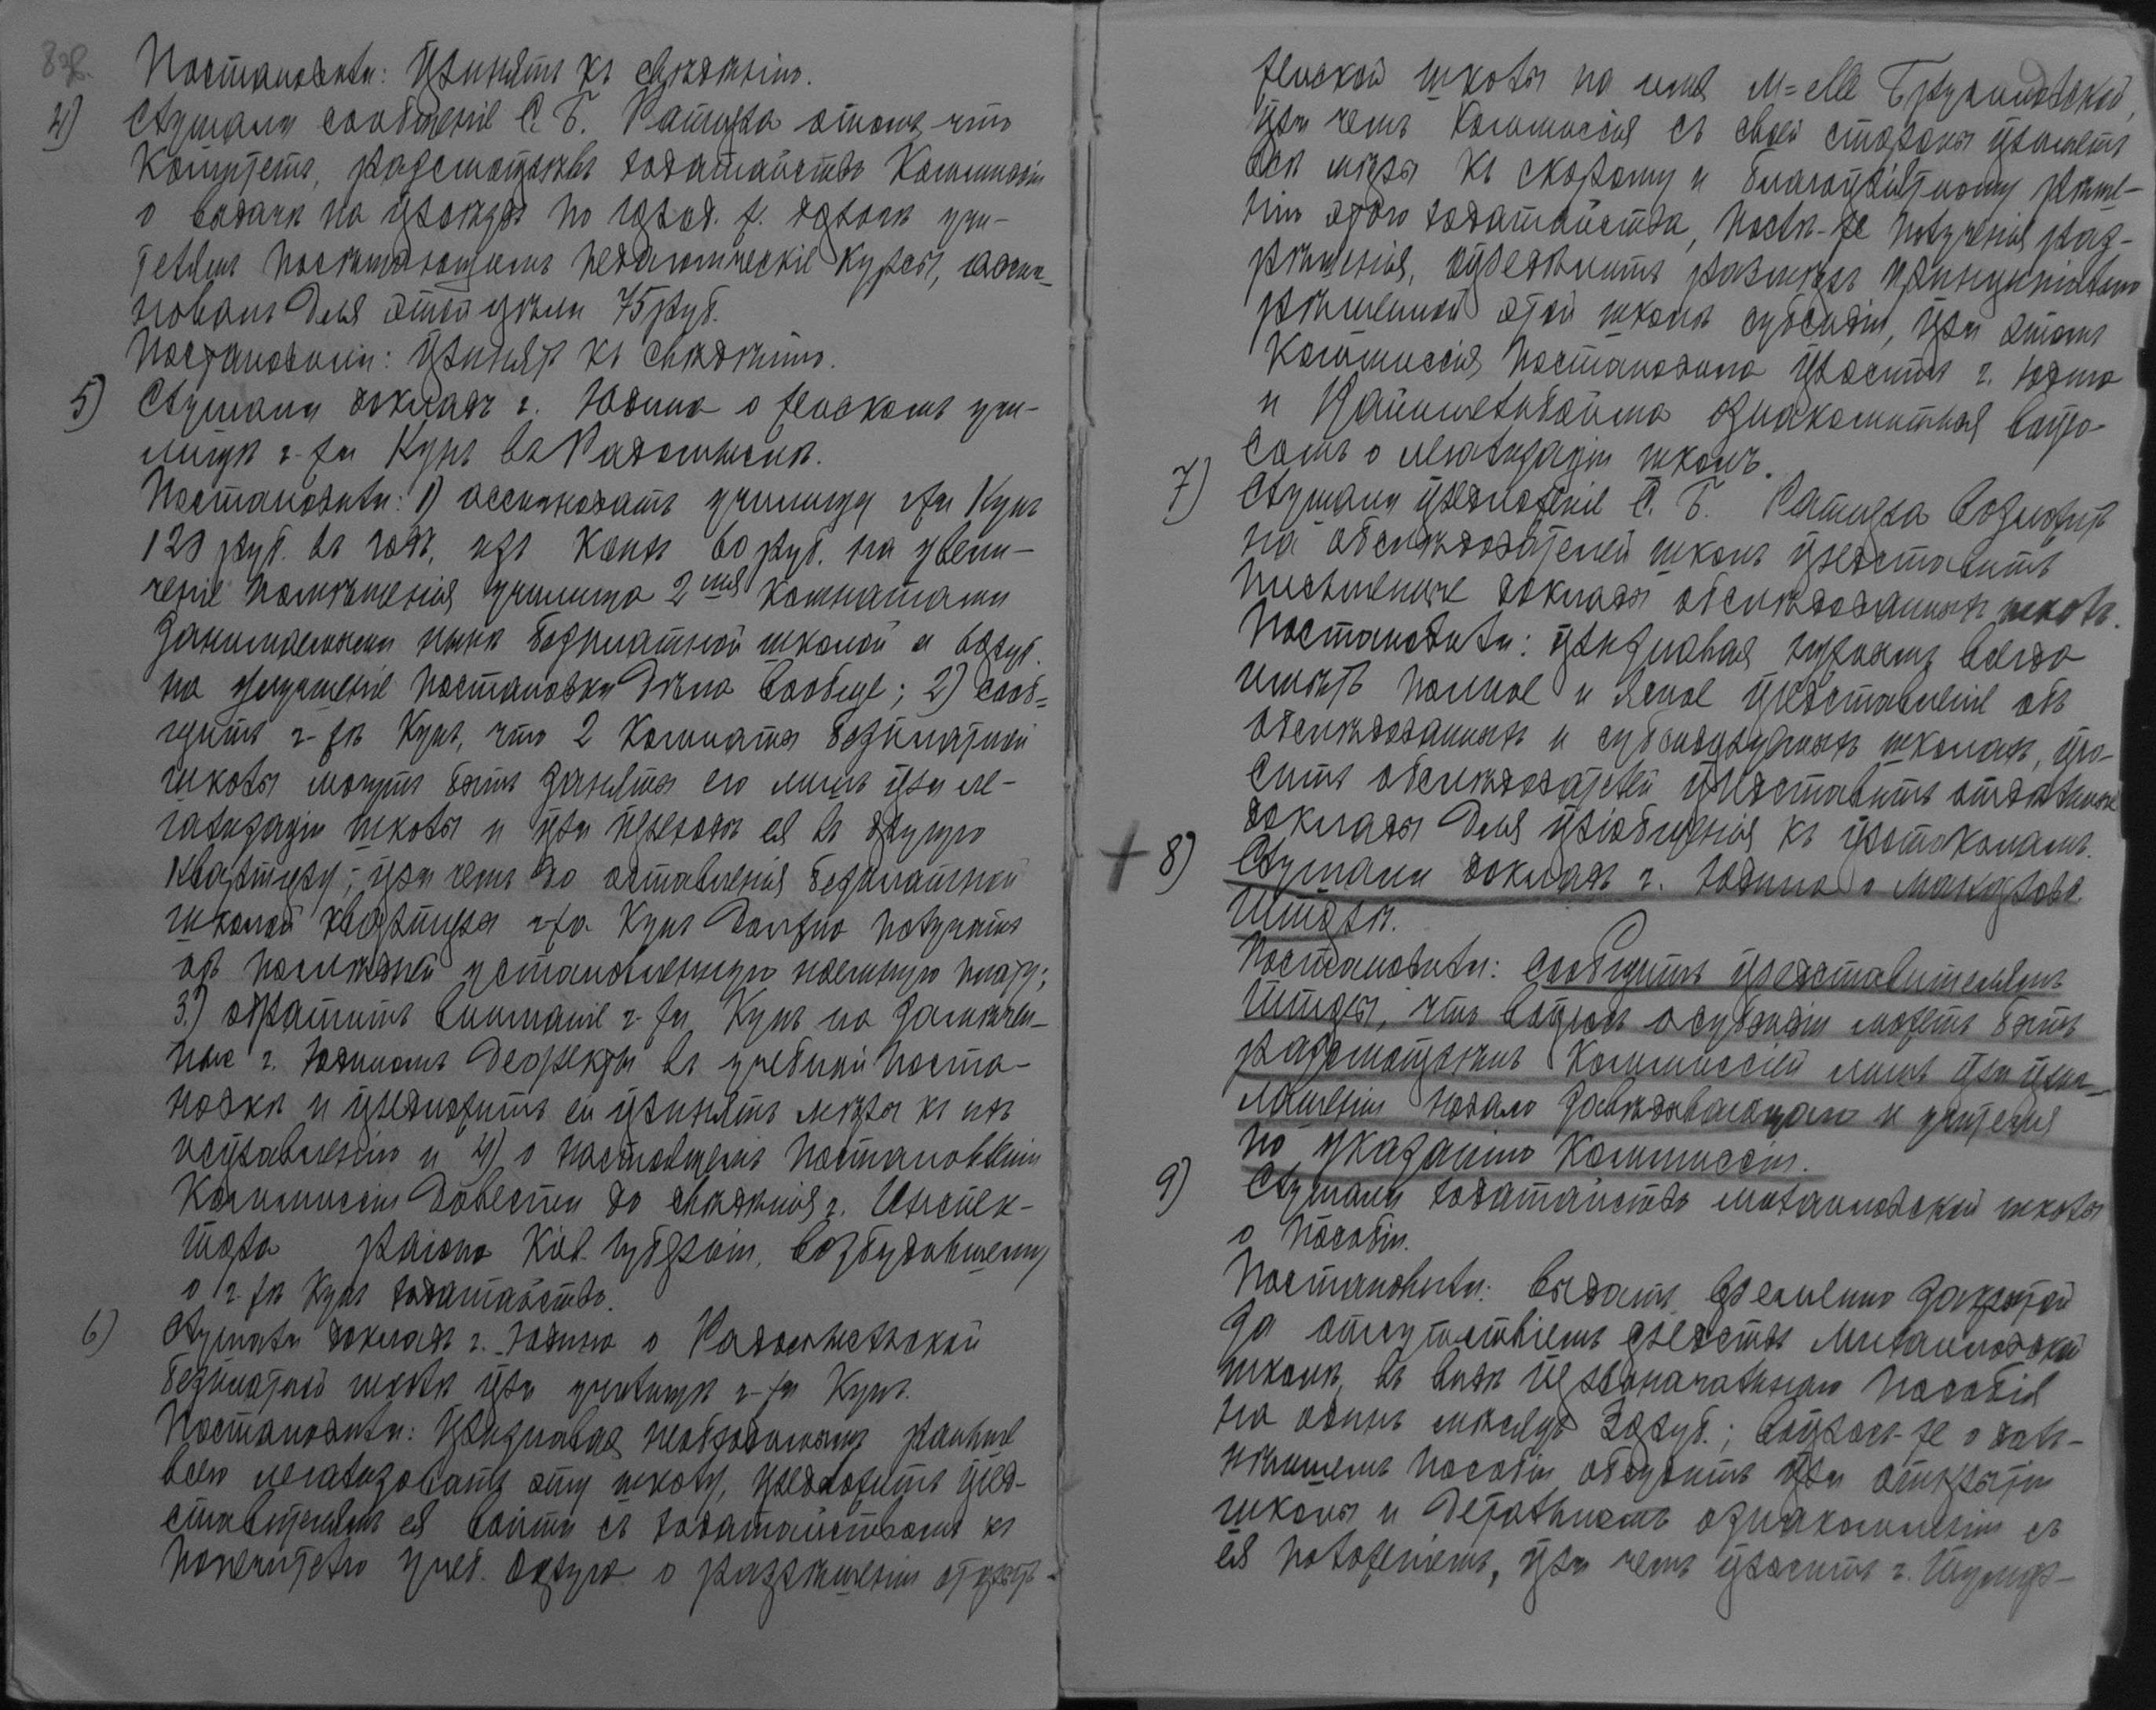 Постановили: Принять къ свѣдѣнію.
4) Слушали сообщеніе С. Б. Ратнера о томъ, что
Комитетъ, разсмотрѣвъ ходатайство Коммиссіи
о выдачѣ на проѣздъ по желѣз. ж. дорогѣ учи-
телямъ посѣщающимъ педагогическіе курсы, ассиг-
новалъ для этой цѣли 75 руб.
Постановили: Принять къ свѣдѣнію.
5) Слушали докладъ г. Юдина о женскомъ учи-
лищѣ г-жи Купъ въ Радомыслѣ.
Постановили: 1) ассигновать училищу г-жи Купъ
120 руб. въ годъ, изъ коихъ 60 руб. на увели-
ченіе помѣщенія училища 2мя комнатами
занимаемыми нынѣ безплатной школой и 60 руб.
на улучшеніе постановки дѣла вообще; 2) сооб-
щить г-жѣ Купъ, что 2 комнаты безплатной
школы могутъ быть заняты ею лишь при ле-
гализаціи школы и при переходѣ ея въ другую
квартиру; при чемъ до оставленія безплатной
школой квартиры г-жа Купъ должно получать
отъ послѣдней установленную наемную плату;
3) обратить вниманіе г-жи Купъ на замѣчен-
ные г. Юдинымъ дефекты въ учебной поста-
новкѣ и предложить ей принять мѣры къ ихъ
исправленію и 4) о настоящемъ постановленіи
Коммиссіи довести до свѣдѣнія г. Инспек-
тора района Кіев. губерніи, возбудившему
о г-жѣ Купъ ходатайство.
6) Слушали докладъ г. Юдина о Радомысльской
безплатной школѣ при училищѣ г-жи Купъ.
Постановили: Признавая необходимымъ раньше
всего легализовать эту школу, предложить пред-
ставителямъ ея войти съ ходатайствомъ къ
попечителю учеб. округа о разрѣшеніи открыть
женской школы на имя M-elle
при чемъ Коммиссія съ своей стороны приметъ
всѣ мѣры къ скорому и благопріятному рѣше-
нію этого ходатайства, послѣ-же полученія раз-
рѣшенія, опредѣлить размѣръ принципіально
рѣшенной этой школѣ субсидіи, при этомъ
Коммиссія постановила просить г. Юдина
и ознакомиться вопро-
сомъ о легализаціи школъ.
7) Слушали предложеніе С. Б. Ратнера возложить
на обслѣдователей школъ представить
письменные доклады обслѣдованныхъ школъ.
Постановили: признавая нужнымъ всегда
имѣть полное и ясное представленіе объ
обслѣдованныхъ и субсидируемыхъ школахъ, про-
сить обслѣдователей представить отдѣльные
доклады для пріобщенія къ протоколамъ.
+ 8) Слушали докладъ г. Юдина о Макаровс.
Т. Торѣ.
Постановили: сообщить представителямъ
Т. Торы, что вопросъ о субсидіи можетъ быть
разсмотрѣнъ Коммиссіей лишь при приг-
лашеніи новаго завѣдывающаго и учителя
по указанію Коммиссіи.
9) Слушали ходатайство школы
о пособіи.
Постановили: выдать временно закрытой
за отсутствіемъ средствъ
школѣ, въ видѣ первоначальнаго пособія
на одинъ мѣсяцъ 30 руб.; вопросъ-же о даль-
нѣйшемъ пособіи обсудить при открытіи
школы и детальномъ ознакомленіи съ
ея положеніемъ, при чемъ просить г.